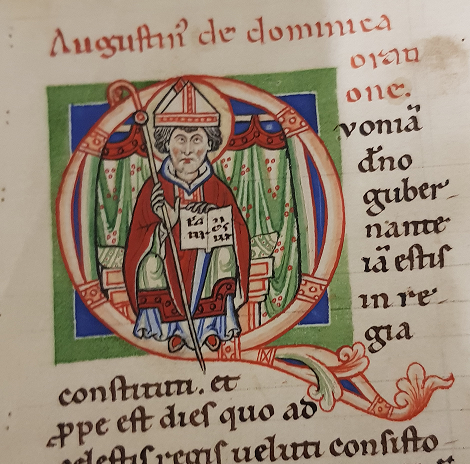 Augustin᾽ de dominica
orati
one.
Q voniā
dn̄o
guber
nante
iā estis
in re
gia
constituti. et
ꝓpe est dies quo ad
celestis regis ueluti consisto